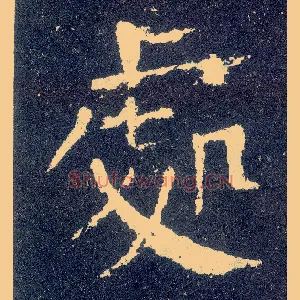 處
Shufawang.CN